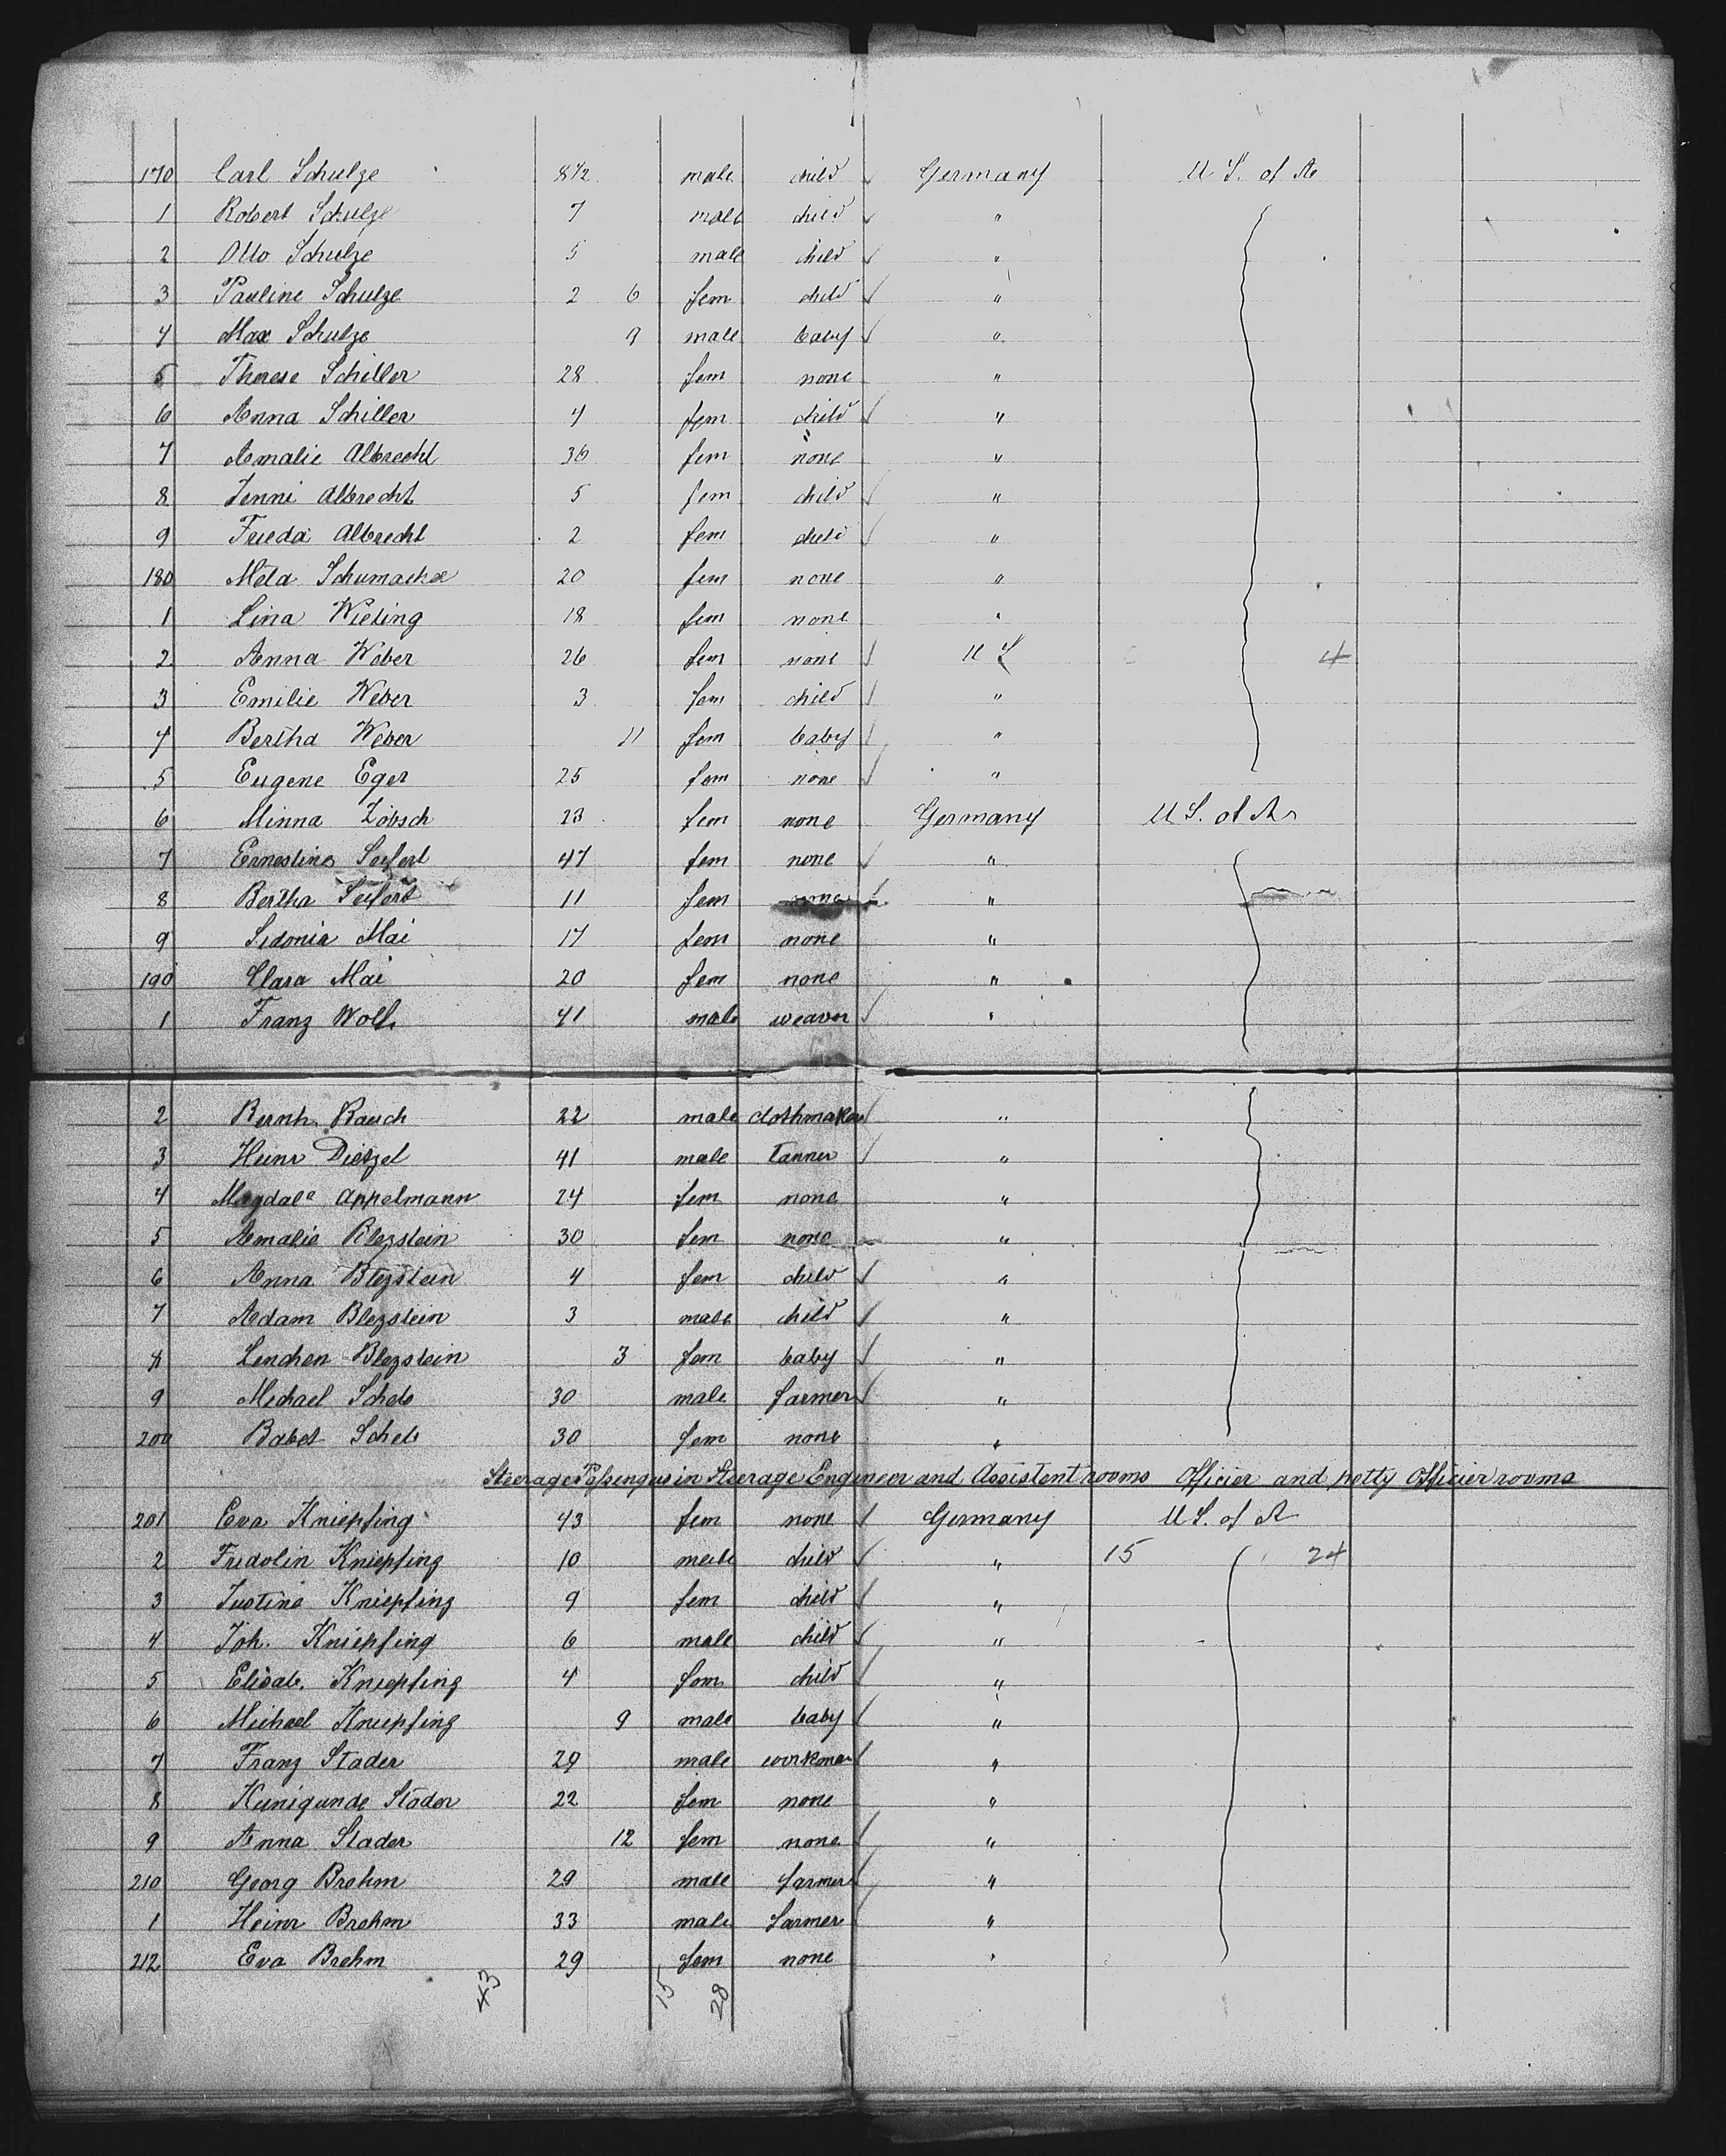 170 Carl Schulze 8 1/2 male child Germany U S. of A
1 Robert Schulze 7 male child "
2 Otto Schulze 5 male child "
3 Pauline Schulze 2 6 fem child "
4 Max Schulze 9 male baby "
5 Therese Schiller 28 fem none "
6 Anna Schiller 4 fem child "
7 Amalie Albrecht 36 fem none "
8 Jenni Albrecht 5 fem child "
9 Frieda Albrecht 2 fem child "
180 Meta 20 fem none "
1 Lina Wieting 18 fem none "
2 Anna Weber 26 fem none U S 4
3 Emilie Weber 3 fem child "
4 Bertha Weber 11 fem baby "
5 Eugene Eger 25 fem none "
6 Minna Zöbsch 23 fem none Germany U S. of A
7 Ernestine Seifert 47 fem none "
8 Bertha Seifert 11 fem none "
9 Sidonia Mai 17 fem none "
190 Clara Mai 20 fem none "
1 Franz 41 male weaver "
2 Bernh. Rauch 22 male clothmaker "
3 Heinr Dietzel 41 male Tanner "
4 Magdale Appelmann 24 fem none "
5 Amalie Blezstein 30 fem none "
6 Anna Blezstein 4 fem child "
7 Adam Blezstein 3 male child "
8 Lenchen Blezstein 3 fem baby "
9 Michael Scheb 30 male farmer "
200 Babet Scheb 30 fem none "
Steerage Passengers in Steerage Engineer and Assistent rooms Officier and petty Officier rooms
201 Eva Kniepfing 43 fem none Germany U S. of A
2 Fridolin Kniepfing 10 male child " 15 24
3 Justine Kniepfing 9 fem child "
4 Joh. Kniepfing 6 male child "
5 Elisab. Kniepfing 4 fem child "
6 Michael Kniepfing 9 male baby "
7 Franz Stader 29 male workman "
8 Kunigunde Stader 22 fem none "
9 Anna Stader 12 fem none "
210 Georg Brehm 29 male farmer "
1 Heinr Brehm 33 male farmer "
212 Eva Brehm 29 fem none "
43 15 28